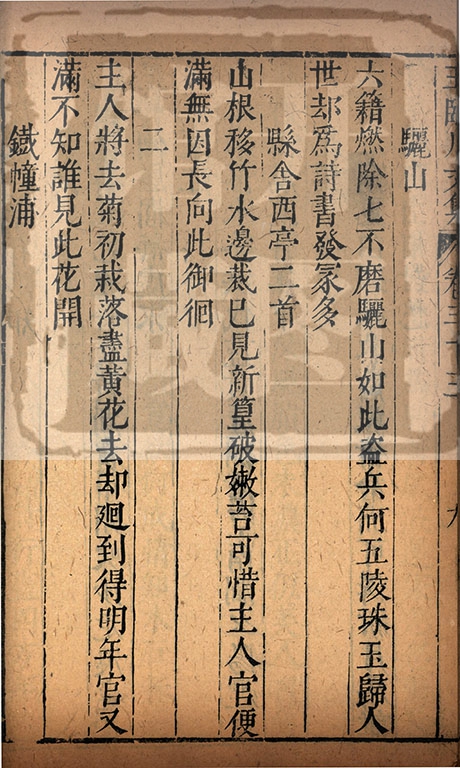 驪山
六籍燃除士不磨驪山如此盜兵何五陵珠玉歸人
世却爲詩書發冢多
縣舎西亭二首
山根移竹水邊栽已見新篁破嫩苔可惜主人官便
滿無因長向此徘徊
二
主人將去菊初栽落盡黃花去却廻到得明年官又
滿不知誰見此花開
鐵幢浦